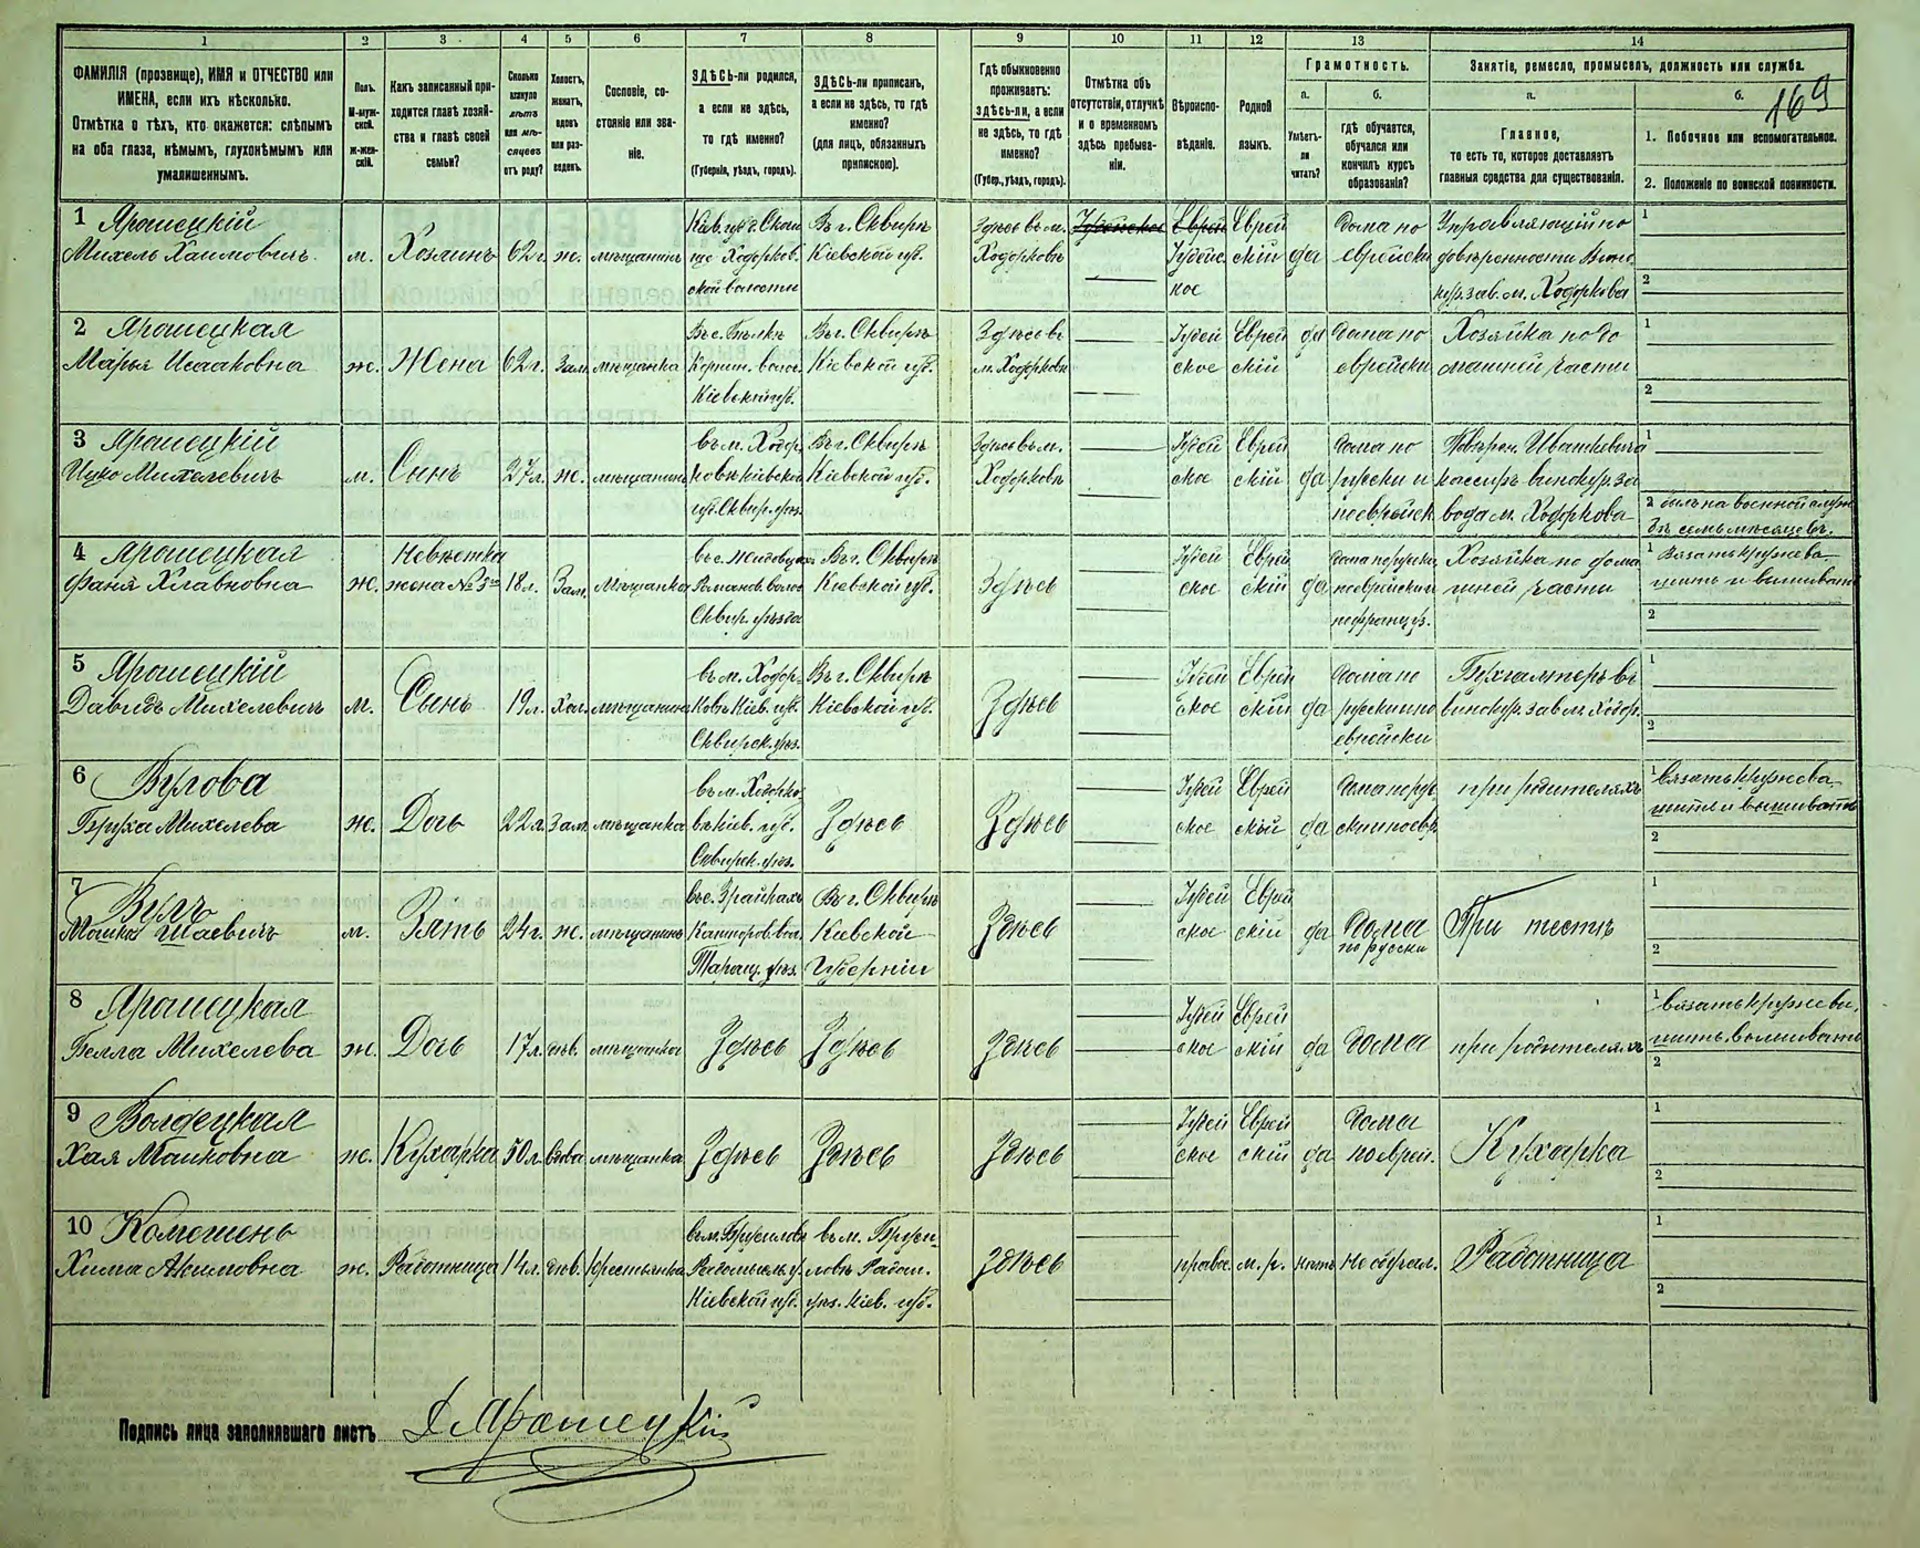 1 2 3 4 5 6 7 8 9 10 11 12 13 14
169
ФАМИЛІЯ (прозвище), ИМЯ и ОТЧЕСТВО или
ИМЕНА, если ихъ нѣсколько.
Отмѣтка о тѣхъ, кто окажется: слѣпымъ
на оба глаза, нѣмымъ, глухонѣмымъ или
умалишеннымъ.
Полъ.
М-муж-
ской.
Ж-жен-
скій.
Какъ записанный при-
ходится главѣ хозяй-
ства и главѣ своей
семьи?
Сколько
минуло
лѣтъ
или мѣ-
сяцевъ
отъ роду?
Холостъ,
женатъ,
вдовъ
или раз-
веденъ.
Сословіе, со-
стояніе или зва-
ніе.
ЗДѢСЬ-ли родился,
а если не здѣсь,
то гдѣ именно?
(Губернія, уѣздъ, городъ).
ЗДѢСЬ-ли приписанъ,
а если не здѣсь, то гдѣ
именно?
(для лицъ, обязанныхъ
припискою).
Гдѣ обыкновенно
проживаетъ:
здѣсь-ли, а если
не здѣсь, то гдѣ
именно?
(Губер., уѣздъ, городъ).
Отмѣтка объ
отсутствіи, отлучкѣ
и о временномъ
здѣсь пребыва-
ніи.
Вѣроиспо-
вѣданіе.
Родной
языкъ.
Грамотность.
а.
Умѣетъ-
ли
читать?
б.
гдѣ обучается,
обучался или
кончилъ курсъ
образованія?
Занятіе, ремесло, промыселъ, должность или служба.
а.
Главное,
то есть то, которое доставляетъ
главныя средства для существованія.
б.
1. Побочное или вспомогательное.
2. Положеніе по воинской повинности.
1 Ярошецкій
Михель Хаимовичъ
м.
Хозяинъ
62 г.
ж.
мѣщанинъ
Ходорков.
ской волости
Въ г. Сквирѣ
Кіевской губ.
Здѣсь въ м.
Ходорковѣ
Іудейское
Еврей
Іудейс
кое
Еврей
скій
да
дома по
еврейски
Управляющій по
довѣренности Вино
кур. зав. м. Ходоркова
1
2
2 Ярошецкая
Марья Исааковна
ж.
Жена
62 г.
Зам.
мѣщанка
Кіевской губ.
Въ г. Сквирѣ
Кіевской губ.
Здѣсь въ
м. Ходорковѣ
Іудей
ское
Еврей
скій
да
дома по
еврейски
Хозяйка по до
машней части
1
2
3 Ярошецкій
Ицко Михелевичъ
м.
Сынъ
27 л.
ж.
мѣщанинъ
въ м. Ходор
ковѣ Кіевской
губ. Сквир. уѣз.
Въ г. Сквирѣ
Кіевской губ.
Здѣсь въ м.
Ходорковѣ
Іудей
ское
Еврей
скій
да
дома по
русски и
по еврейск.
кассиръ винокур. за
вода м. Ходоркова
1
2 былъ на военной служ
бѣ семь мѣсяцевъ.
4 Ярошецкая
Фаня Хлавновна
ж.
Невѣстка
жена № 3го
18 л.
Зам.
Мѣщанка
Романов. волос
Сквир. уѣзда
Въ г. Сквирѣ
Кіевской губ.
Здѣсь
Іудей
ское
Еврей
скій
да
дома по русски,
по еврейски и
по француз.
Хозяйка по дома
шней части
1 Вязать кружева
шить и вышивать
2
5 Ярошецкій
Давидъ Михелевичъ
м.
Сынъ
19 л.
Хол.
мѣщанинъ
въ м. Ходор-
ковѣ Кіев. губ.
Сквирск. уѣз.
Въ г. Сквирѣ
Кіевской губ.
Здѣсь
Іудей
ское
Еврей
скій
да
дома по
русски и по
еврейски
Бухгалтеръ въ
винокур. зав. м. Ходор.
1
2
6 Вулова
Бруха Михелева
ж.
Дочь
22 л.
Зам.
мѣщанка
въ м. Ходорко
вѣ Кіев. губ.
Сквирск. уѣз.
Здѣсь
Здѣсь
Іудей
ское
Еврей
скій
да
дома по рус
ски и по евр.
при родителяхъ
1 вязать кружева
шить и вышивать
2
7 Вулъ
Мошко Шаевичъ
м.
Зять
24 г.
ж.
мѣщанинъ
Таращ. уѣз.
Въ г. Сквирѣ
Кіевской
Губерніи
Здѣсь
Іудей
ское
Еврей
скій
да
дома
по русски
При тестѣ
1
2
8 Ярошецкая
Белла Михелева
ж.
Дочь
17 л.
дѣв.
мѣщанка
Здѣсь
Здѣсь
Здѣсь
Іудей
ское
Еврей
скій
да
дома
при родителяхъ
1 вязать кружева,
шить, вышивать
2
9 Волдецкая
Хая Манковна
ж.
Кухарка
50 л.
вдова
мѣщанка
Здѣсь
Здѣсь
Здѣсь
Іудей
ское
Еврей
скій
да
дома
по еврей.
Кухарка
1
2
10
Хима Акимовна
ж.
Работница
14 л.
дѣв.
крестьянка
въ м. Брусилов
Радомысль. у.
Кіевской губ.
въ м. Бруси-
ловѣ Радом.
уѣз. Кіев. губ.
Здѣсь
правос.
м. р.
нѣтъ
Не обучал.
Работница
1
2
Подпись лица заполнявшаго листъ
Д Ярошецкій